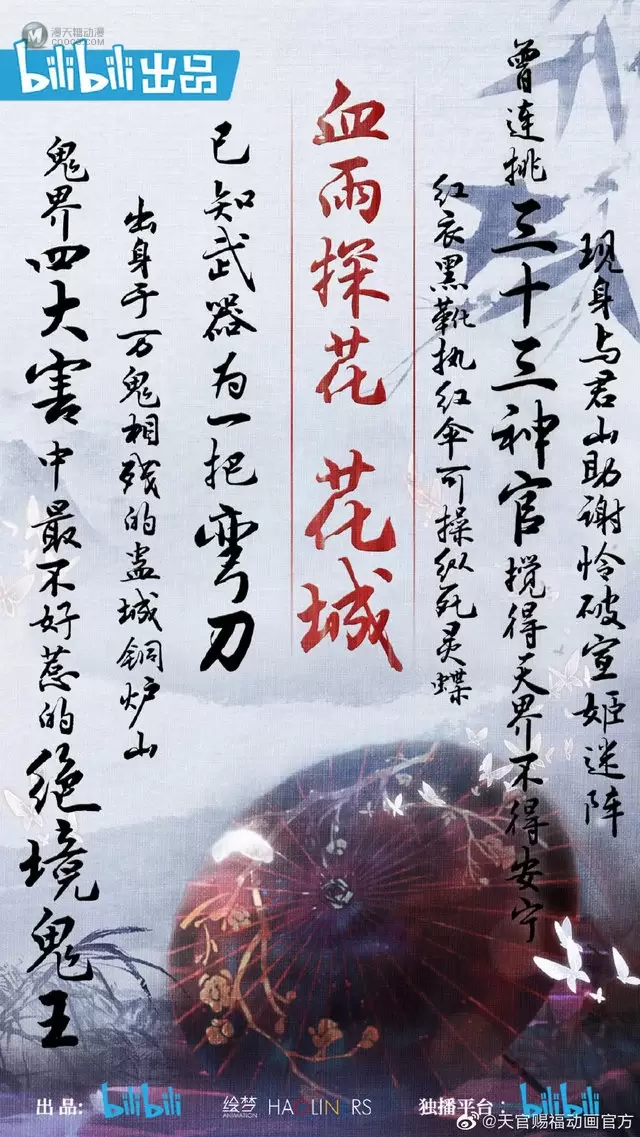 漫天糖动漫
COOCO.COM
bilibili出品
现身与君山助谢怜破宣姬迷阵
曾连挑三十三神官搅得天界不得安宁
红衣黑靴执红伞可操纵死灵蝶
血雨探花 花城
已知武器为一把弯刀
出身于万鬼相残的蛊城铜炉山
鬼界四大害中最不好惹的绝境鬼王
出品: bilibili 绘梦 ANIMATION HAOLINERS 独播平台: bilibili
@天官赐福动画官方